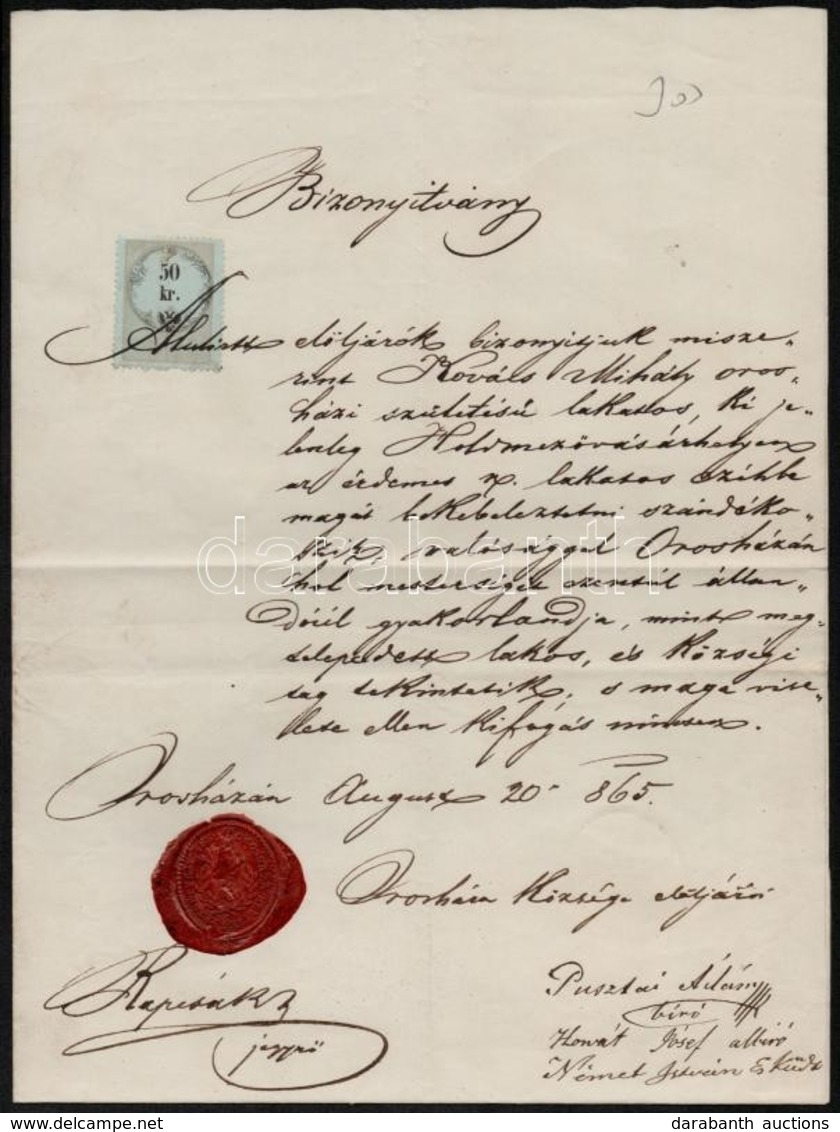 Bizonyitvány
50
kr.
Alulirtt elöljárók bizonyitjuk misze„
rint Kovács Mihály oros„
házi születésü lakatos, ki je„
lenleg Holdmezövásárhelyen
az érdemes n. lakatos czéhbe
magát bekebeleztetni szándéko„
zik, valósággal Orosházán
hol mesterségét szerét állan„
dóúl gyakorlandja, mint meg„
telepedett lakos, és községi
tag tekintetik, s maga vise„
lete ellen kifogás nincsen.
Orosházán August 20 865.
Orosháza községe elöljárói
Pusztai Ádám
biró
Horvát Jósef albiró
Német István Esküdt
jegyző
darabanth
darabanth auctions